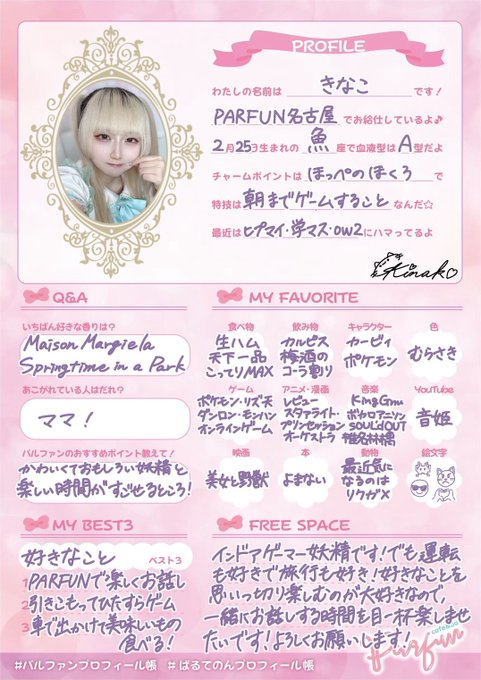 PROFILE
わたしの名前は きなこ です!
PARFUN名古屋 でお給仕しているよ♪
2月25日生まれの 魚 座で血液型は A 型だよ
チャームポイントは ほっぺのほくろ で
特技は 朝までゲームすること なんだ☆
最近は ヒプマイ・学マス・ow2 にハマってるよ
Kinako♡
Q&A
いちばん好きな香りは?
Maison Margiela
Springtime in a Park
あこがれている人はだれ?
ママ!
パルファンのおすすめポイント教えて!
かわいくておもしろい妖精と
楽しい時間がすごせるところ!
MY FAVORITE
食べ物
生ハム
天下一品
こってりMAX
飲み物
カルピス
梅酒の
コーラ割り
キャラクター
カービィ
ポケモン
色
むらさき
ゲーム
ポケモン・リズ天
ダンロン・モンハン
オンラインゲーム
アニメ・漫画
レビュー
スタァライト・
プリンセッション
オーケストラ
音楽
King Gnu
ボカロアニソン
SOUL'd OUT
椎名林檎
YouTube
音姫
映画
美女と野獣
本
よまない
動物
最近気に
なるのは
リクガメ
絵文字
MY BEST3
好きなこと ベスト3
1 PARFUNで楽しくお話し
2 引きこもってひたすらゲーム
3 車で出かけて美味しいもの
食べる!
FREE SPACE
インドアゲーマー妖精です!でも運転
も好きで旅行も好き!好きなことを
思いっきり楽しむのが大好きなので、
一緒にお話しする時間を目一杯楽しませ
たいです!よろしくお願いします!
cafe&bar
Parfun
#パルファンプロフィール帳 #ぱるてのんプロフィール帳